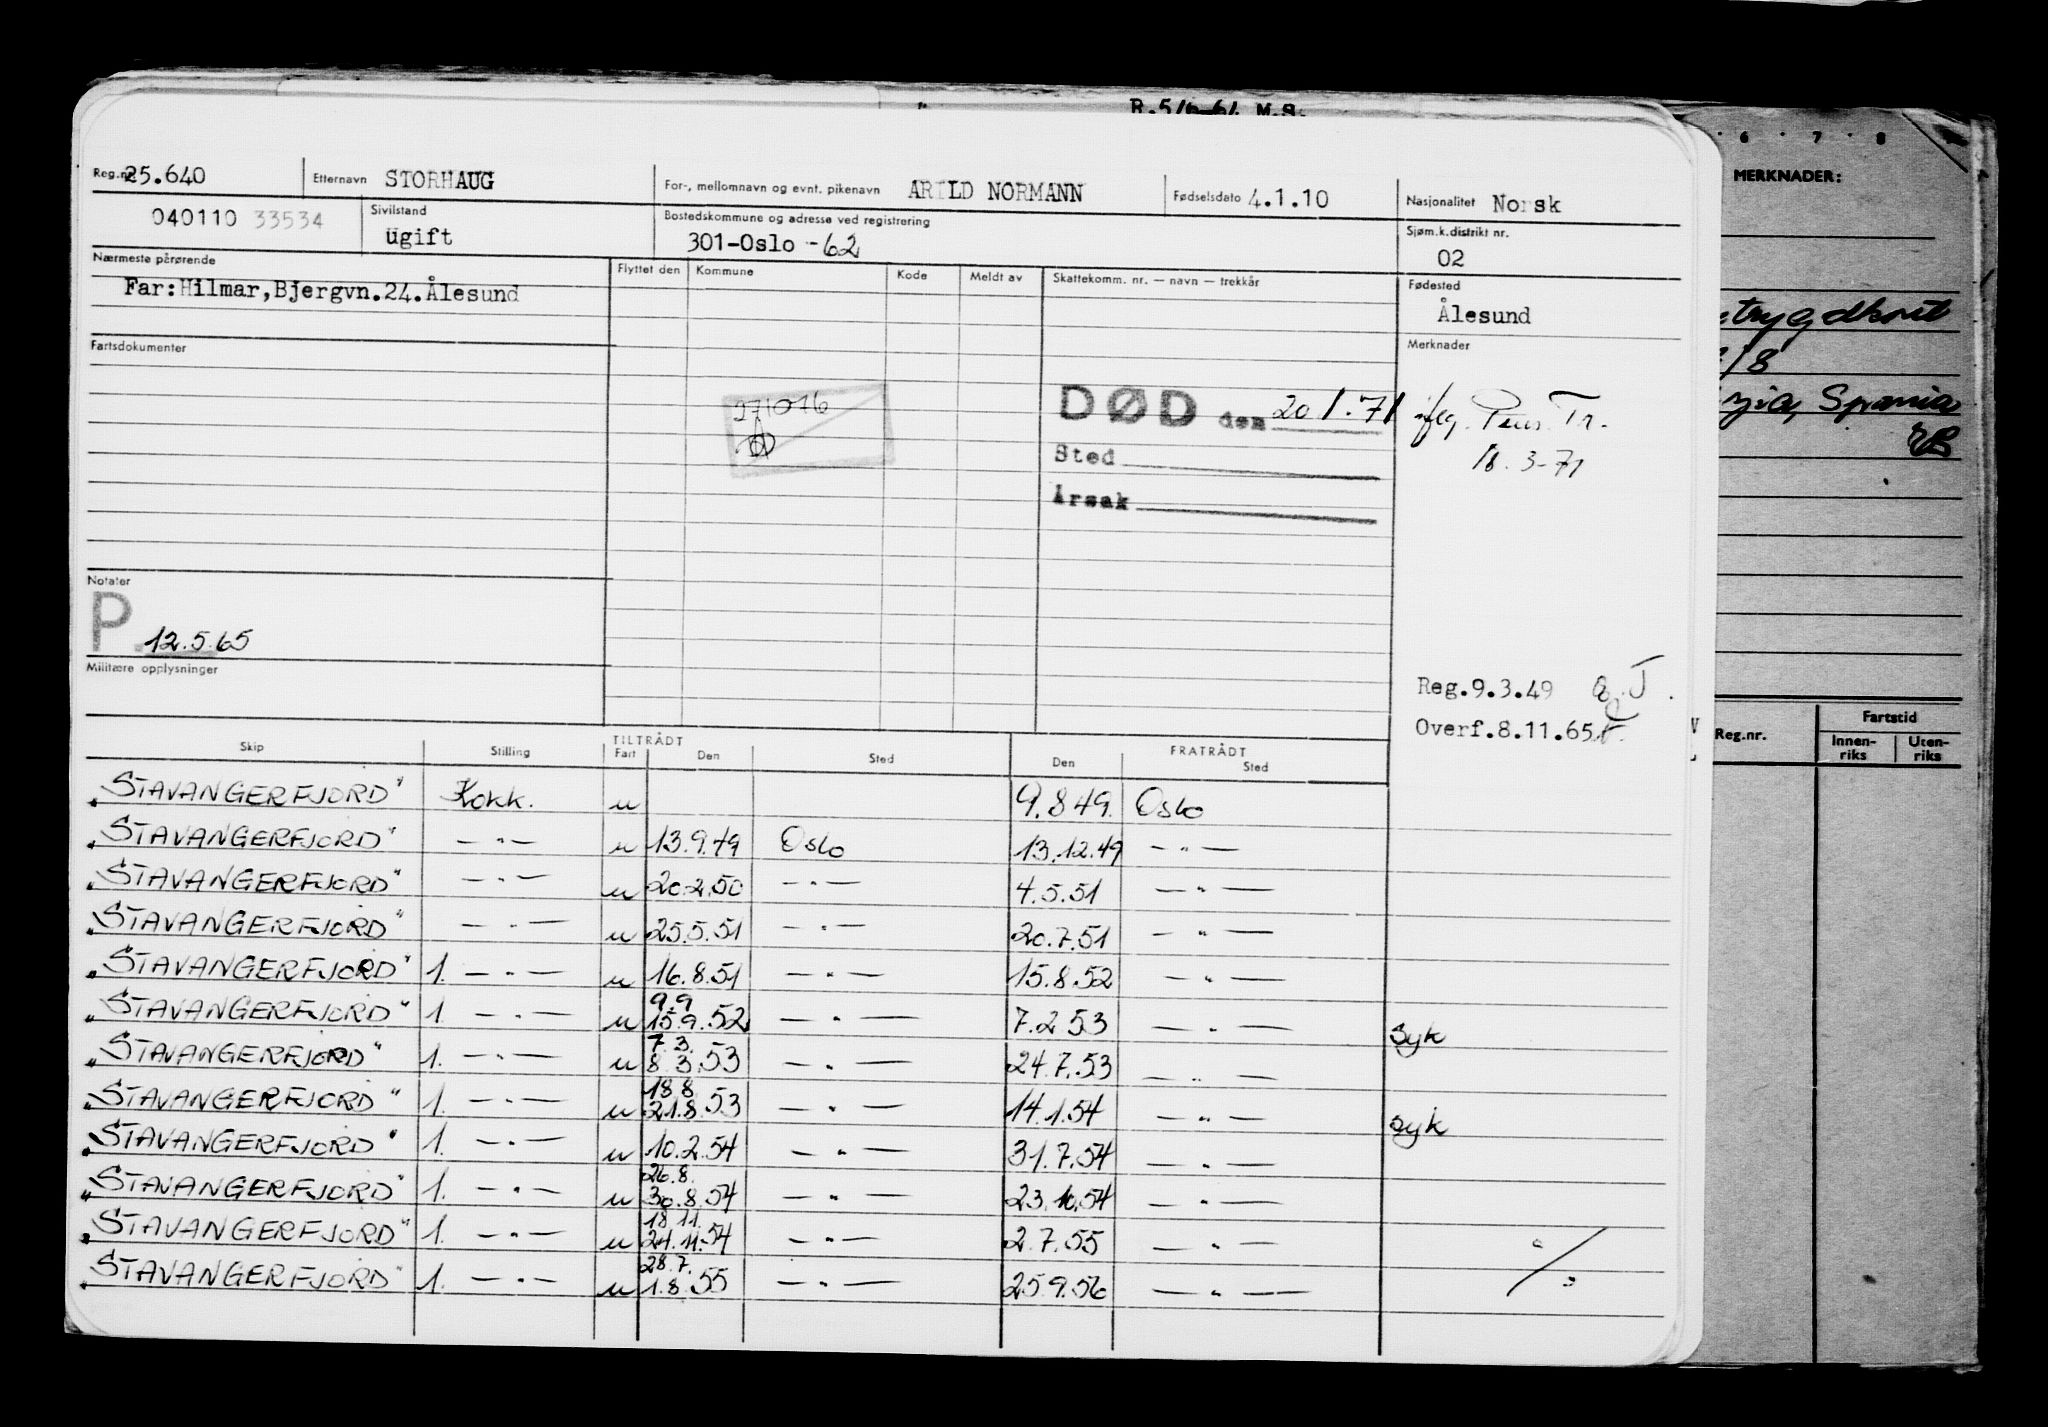 R.5/6-61 M.S.
Reg.nr. 25.640 Etternavn STORHAUG For-, mellomnavn og evnt. pikenavn ARILD NORMANN Fødselsdato 4.1.10 Nasjonalitet Norsk
040110 33534 Sivilstand ugift Bostedskommune og adresse ved registrering 301-Oslo -62 Sjøm.k.distrikt nr. 02
Nærmeste pårørende Flyttet den Kommune Kode Meldt av Skattekomm. nr. — navn — trekkår Fødested
Far:Hilmar,Bjergvn.24.Ålesund Ålesund
Fartsdokumenter Merknader
271076
DØD den 20/1.71 iflg. Pens. Tr.
Sted 18.3-71
Årsak
Notater
P 12.5.65
Militære opplysninger
Reg.9.3.49
Overf.8.11.65
Skip Stilling TILTRÅDT Fart Den Sted FRATRÅDT Den Sted
"STAVANGERFJORD" Kokk. u 9.8.49. Oslo
"STAVANGERFJORD" —"— u 13.9.49 Oslo 13.12.49 —"—
"STAVANGERFJORD" —"— u 20.2.50 —"— 4.5.51 —"—
"STAVANGERFJORD" —"— u 25.5.51 —"— 20.7.51 —"—
"STAVANGERFJORD" 1. —"— u 16.8.51 —"— 15.8.52 —"—
"STAVANGERFJORD" 1. —"— u 9.9 15.9.52 —"— 7.2.53 —"— Syk
"STAVANGERFJORD" 1. —"— u 7.3. 8.3.53 —"— 24.7.53 —"—
"STAVANGERFJORD" 1. —"— u 18.8 21.8.53 —"— 14.1.54 —"— syk
"STAVANGERFJORD" 1. —"— u 10.2.54 —"— 31.7.54 —"—
"STAVANGERFJORD" 1. —"— u 26.8. 30.8.54 —"— 23.10.54 —"—
"STAVANGERFJORD" 1. —"— u 18.11. 21.11.54 —"— 2.7.55 —"—
"STAVANGERFJORD" 1. —"— u 28.7. 1.8.55 —"— 25.9.56 —"—
6 7 8
MERKNADER:
/8
Spania
Reg.nr. Fartstid
Innen-riks Uten-riks